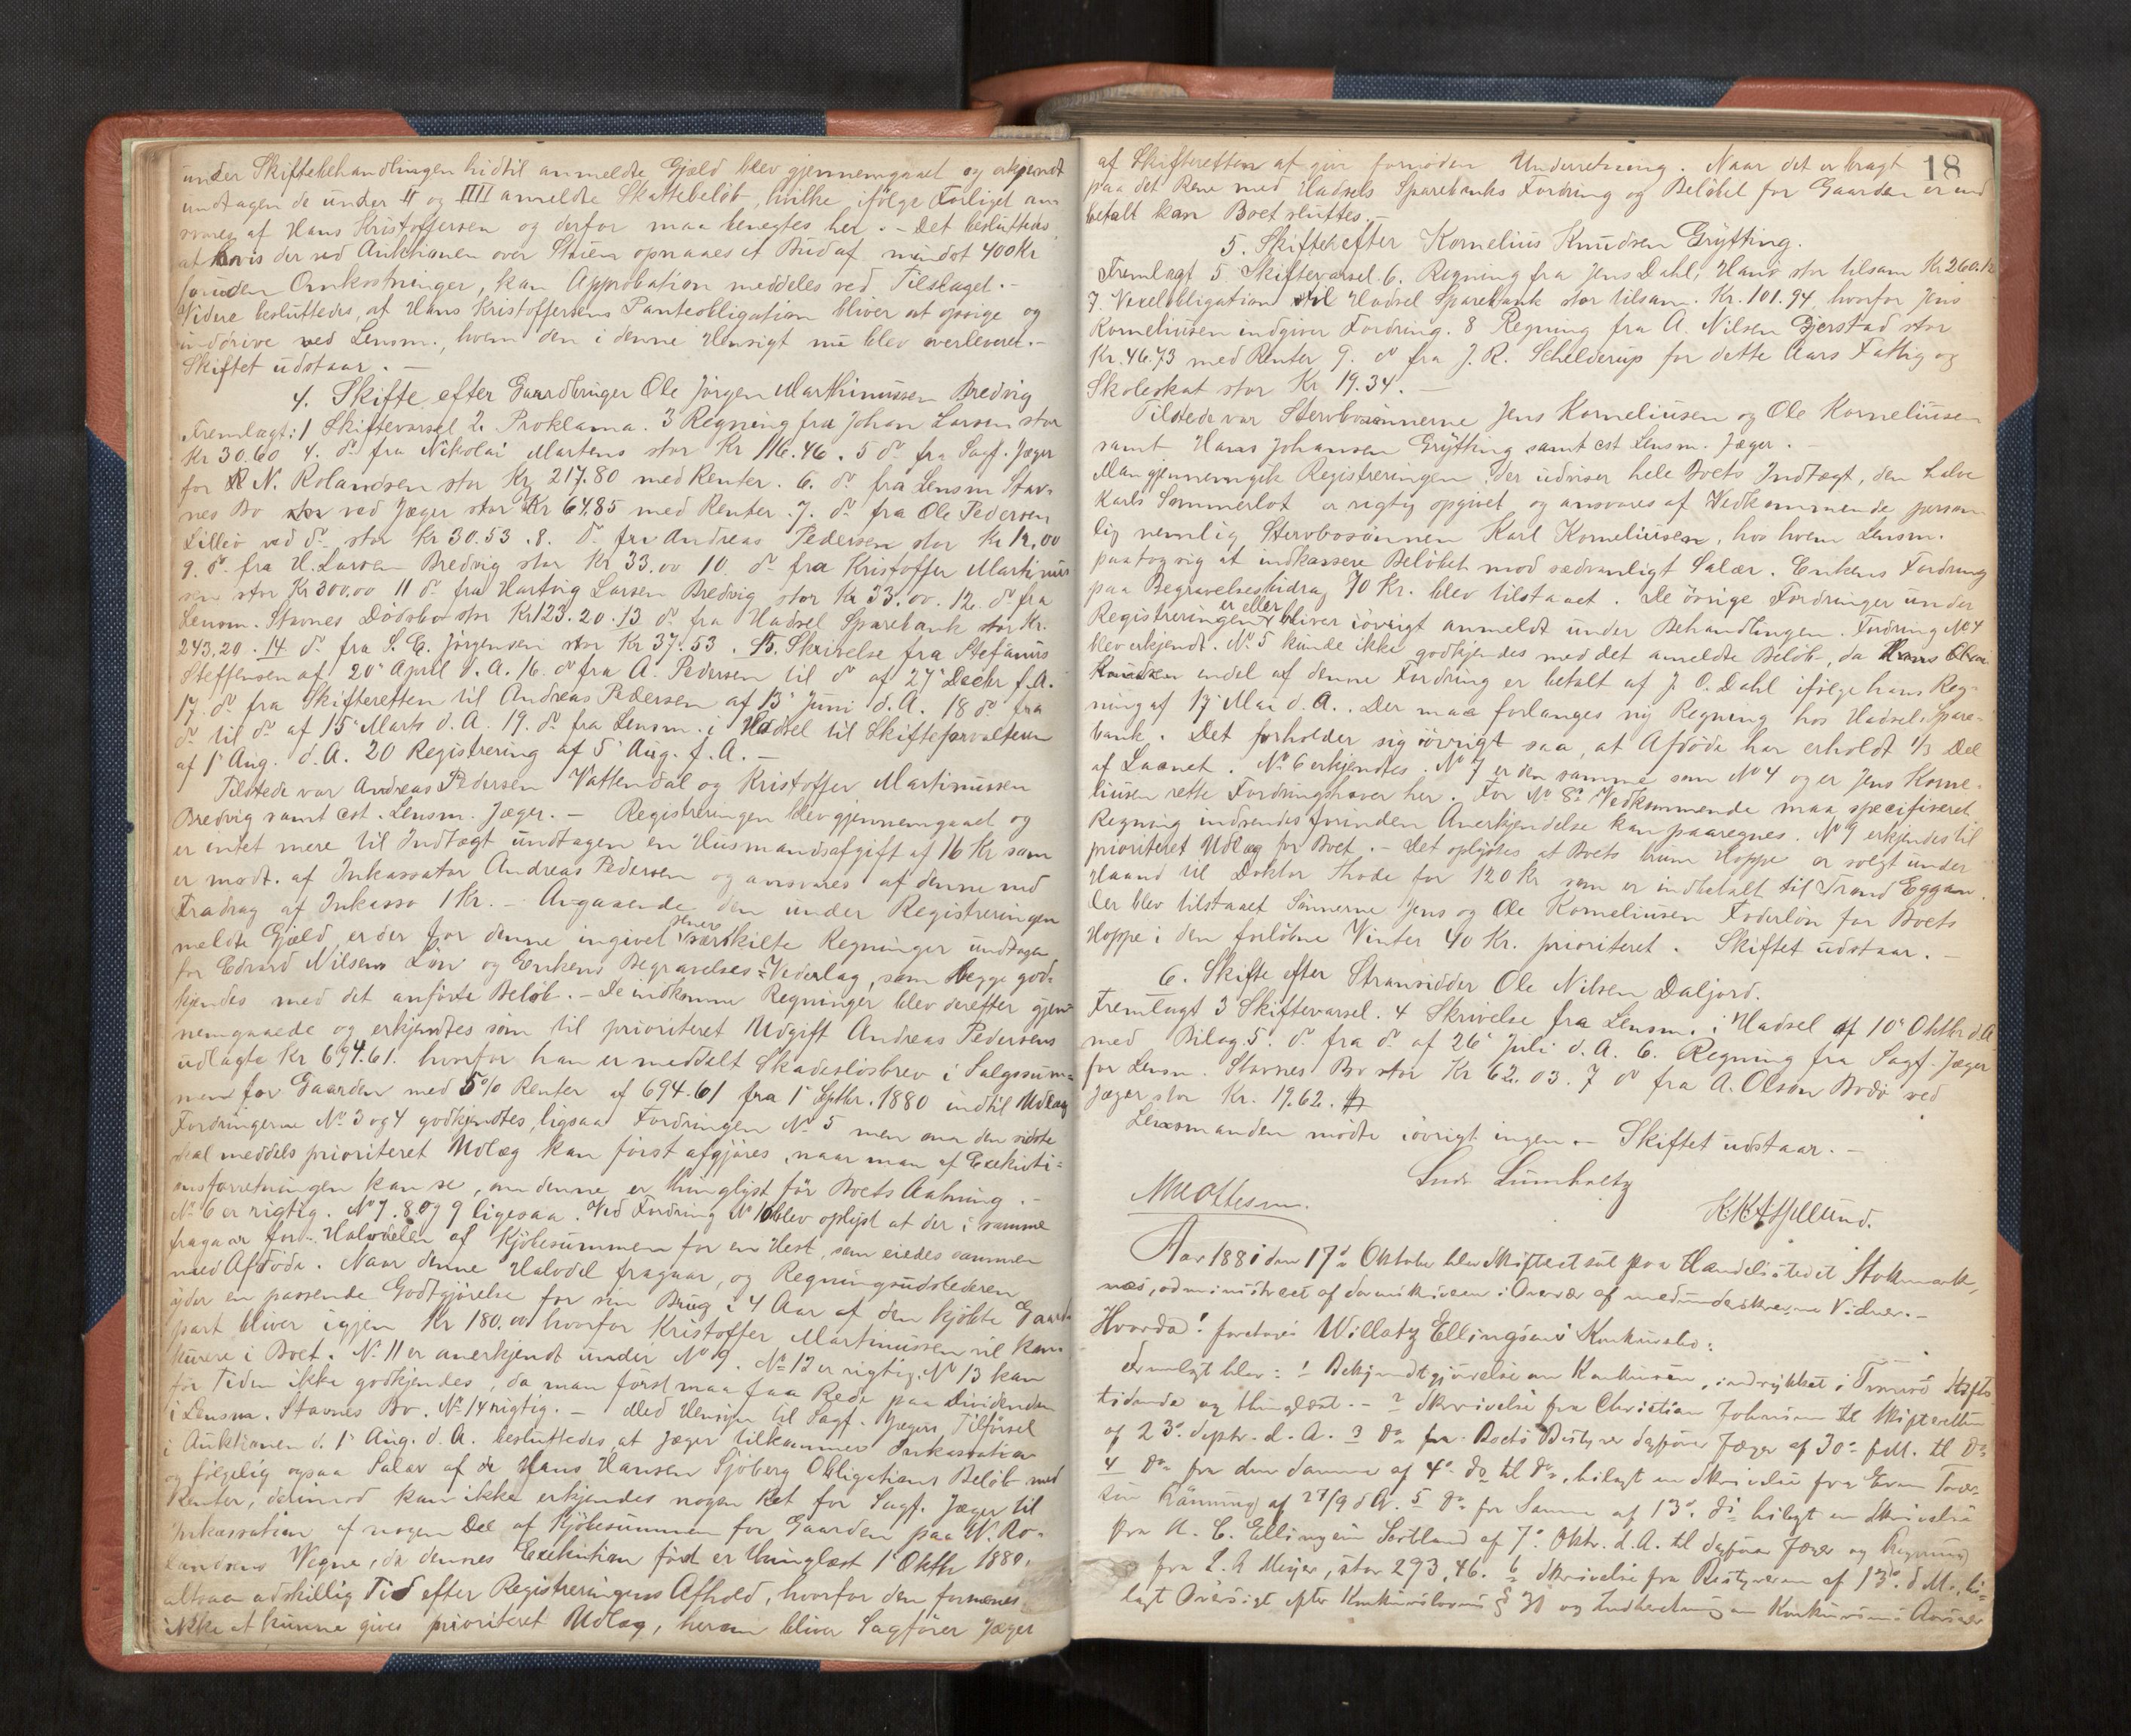 under Skiftebehandlingen hidtil anmeldte Gjæld blev gjennemgaaet og erkjendt
undtagen de under II og IIII anmeldte Skattebeløb, hvilke ifølge Forliget an-
svares af Hans Kristoffersen og derfor maa benegtes her. - Det besluttedes
at hvis der ved Auktionen over Stuen opnaaes et Bud af mindst 400 Kr
foruden Omkostninger, kan Approbation meddeles ved Tilslaget. -
Videre besluttedes, at Hans Kristoffersens Panteobligation bliver at opsige og
inddrive ved Lensm., hvem den i denne Hensigt nu blev overleveret. -
Skiftet udstaar. -
4. Skifte efter Gaardbruger Ole Jörgen Marthinussen Bredvig
Fremlagt: 1 Skiftevarsel 2. Proklama. 3 Regning fra Johan Larsen stor
Kr 30.60 4. do fra Nikolai Martens stor Kr 116.46. 5 do fra Sagf. Jæger
for N. Rolandsen stor Kr 217.80 med Renter. 6. do fra Lensm Stav-
nes Bo ved Jæger stor Kr 64.85 med Renter. 7. do fra Ole Pedersen
Lillev ved do stor Kr 30.53. 8. do fra Andreas Pedersen stor Kr 12,00
9. do fra H. Larsen Bredvig stor Kr 33.00 10 do fra Kristoffer Martinus
sen stor Kr 300.00 11 do fra Hartvig Larsen Bredvig stor Kr 33.00. 12. do fra
Lensm. Stavnes Dødsbo stor Kr 123.20. 13 do fra Hadsel Sparebank stor Kr.
243.20. 14 do fra S. C. Jörgensen stor Kr 37.53. 15. Skrivelse fra Stefanus
Steffensen af 20 April d. A. 16. do fra A. Pedersen til do af 27 Decbr f. A.
17. do fra Skifteretten til Andreas Pedersen af 13 Juni d. A. 18 do fra
do til do af 15 Marts d. A. 19. do fra Lensm. i Hadsel til Skifteforvalteren
af 1 Aug. d. A. 20 Registrering af 5 Aug. f. A. -
Tilstede var Andreas Pedersen Vattendal og Kristoffer Martinussen
Bredvig samt cst. Lensm. Jæger. - Registreringen blev gjennemgaaet og
er intet mere til Indtægt undtagen en Husmandsafgift af 16 Kr som
er modt. af Inkassator Andreas Pedersen og ansvares af denne med
Fradrag af Inkasso 1 Kr. - Angaaende den under Registreringen
meldte Gjæld, er der for denne ingivet særskilte Regninger undtagen
for Edvard Nilsens Løn og Enkens Begravelses-Vederlag, som begge god-
kjendes med det anførte Beløb. - De indkomne Regninger blev derefter gjen-
nemgaaede og erkjendtes som til prioriteret Udgift Andreas Pedersens
udlagte Kr 694.61. hvorfor han er meddelt Skadesløsbrev i Salgssum-
men for Gaarden med 5% Renter af 694.61 fra 1 Septbr. 1880 indtil Udlæg
Fordringerne No 3 og 4 godkjendtes, ligsaa Fordringen No 5 men om den sidste
skal meddels prioriteret Udlæg kan først afgjøres, naar man af Exekuti-
onsforretningen kan se, om denne er thinglyst før Boets Aabning. -
No 6 er rigtig. No 7. 8 og 9 ligesaa. Ved Fordring No 10 blev oplyst at der i samme
fragaar for Halvdelen af Kjøbesummen for en Hest, som eiedes sammen
med Afdøde. Naar denne Halvdel fragaar, og Regningsudstederen
yder en passende Godtgjørelse for sin Brug i 4 Aar af den kjøbte Gaard
part bliver igjen Kr 180.00 hvorfor Kristoffer Martinussen vil kon-
kurere i Boet. No 11 er anerkjendt under No 9. No 12 er rigtig. No 13 kan
for Tiden ikke godkjendes, da man først maa faa Rede paa Dividenden
i Lensm. Stavnes Bo. No 14 rigtig. - Med Hensyn til Sagf. Jægers Tilførsel
i Auktionen d. 1 Aug. d. A. besluttedes, at Jæger tilkommer Inkassation
og følgelig ogsaa Salær af de Hans Hansen Sjöberg Obligations Beløb med
Renter, derimod kan ikke erkjendes nogen Ret for Sagf. Jæger til
Inkassation af nogen Del af Kjøbesummen for Gaarden paa N. Ro-
landsens Vegne, da dennes Exekution først er thinglæst 1 Oktbr 1880,
altsaa adskillig Tid efter Registreringens Afhold, hvorfor den formenes
ikke at kunne gives prioriteret Udlæg, herom bliver Sagfører Jæger
18
af Skifteretten at give fornøden Underretning. Naar det er bragt
paa det Rene med Hadsels Sparebanks Fordring og Beløbet for Gaarden er ind
betalt kan Boet sluttes. -
5. Skifte efter Kornelius Knudsen Gryfting.
Fremlagt 5 Skiftevarsel. 6. Regning fra Jens Dahl, Hans stor tilsam Kr 260.12
7. Vexelobligation til Hadsel Sparebank stor tilsam. Kr. 101.94, hvorfor Jens
Korneliusen indgiver Fordring. 8 Regning fra A. Nilsen Gjerstad stor
Kr. 46.73 med Renter 9. do fra J. R. Schelderup for dette Aars Fattig og
Skoleskat stor Kr 19.34. -
Tilstede var Stervbosønnerne Jens Korneliusen og Ole Korneliusen
samt Hans Johansen Gryfting samt cst Lensm. Jæger. -
Man gjennemgik Registreringen, der udviser hele Boets Indtægt, den halve
Karls Sommerlot er rigtig opgivet og ansvares af Vedkommende person
lig nemlig Stervbosønnen Karl Korneliusen, hos hvem Lensm.
paatog sig at indkassere Beløbet mod sædvanligt Salær. Enkens Fordring
paa Begravelsesbidrag 70 Kr. blev tilstaaet. De øvrige Fordringer under
Registreringen er eller bliver iøvrigt anmeldt under Behandlingen. Fordring No 4
blev erkjendt. No 5 kunde ikke godkjendes med det anmeldte Beløb, da
endel af denne Fordring er betalt af J. O. Dahl ifølge hans Reg-
ning af 17 Mai d. A.. Der maa forlanges ny Regning hos Hadsel Spare-
bank. Det forholder sig iøvrigt saa, at Afdøde har erholdt 1/3 Del
af Laanet. No 6 erkjendtes. No 7 er den samme som No 4 og er Jens Korne-
liusen rette Fordringshaver her. For No 8s Vedkommende maa specifiseret
Regning indsendes forinden Anerkjendelse kan paaregnes. No 9 erkjendes til
prioriteret Udlæg for Boet. - Det oplystes at Boets brune Hoppe er solgt under
Haand til Doktor Thode for 120 Kr som er indbetalt til Trond Eggan.
Der blev tilstaaet Sønnerne Jens og Ole Korneliusen Foderløn for Boets
Hoppe i den forløbne Vinter 40 Kr. prioriteret. Skiftet udstaar. -
6. Skifte efter Strandsidder Ole Nilsen Daljord.
Fremlagt 3 Skiftevarsel. 4 Skrivelse fra Lensm. i Hadsel af 10 Oktbr d. A
med Bilag. 5. do fra do af 26 Juli d. A. 6. Regning fra Sagf. Jæger
for Lensm. Stavnes Bo stor Kr 62.03. 7 do fra A. Olsen Bodø ved
Jæger stor Kr. 19.62.
Lensmanden mødte iøvrigt ingen. - Skiftet udstaar. -
Lumholtz
Aar 1881 den 17de Oktober blev Skifteret sat paa Handelsstedet Stokmark-
næs, administreret af i Overvær af medunderskrevne Vidner. -
Hvorda! foretoges Willatz Ellingsens Konkursbo:
Fremlagt blev: 1 Bekjendtgjørelse om Konkursen, indrykket i Tromsø Stifts
tidende og thinglæst. - 2 Skrivelse fra Christian Johnsen til Skifteretten
af 23. Septr. d. A. 3 do fra Boets Bestyrer Sagfører Jæger af 30 f. M. til do
4 do fra den samme af 4. ds til do, bilagt en Skrivelse fra
af 27/9 d A. 5 do fra Samme af 13. ds bilagt en Skrivelse
fra A. C. Ellingsen Sortland af 7. Oktr. d. A. til Sagfører Jæger og Regning
fra L. A Meyer, stor 293,46. 6 Skrivelse fra Bestyreren af 13. d M., bi-
lagt Oversigt efter Konkurslovens § 30 og Indberetning om Konkursens